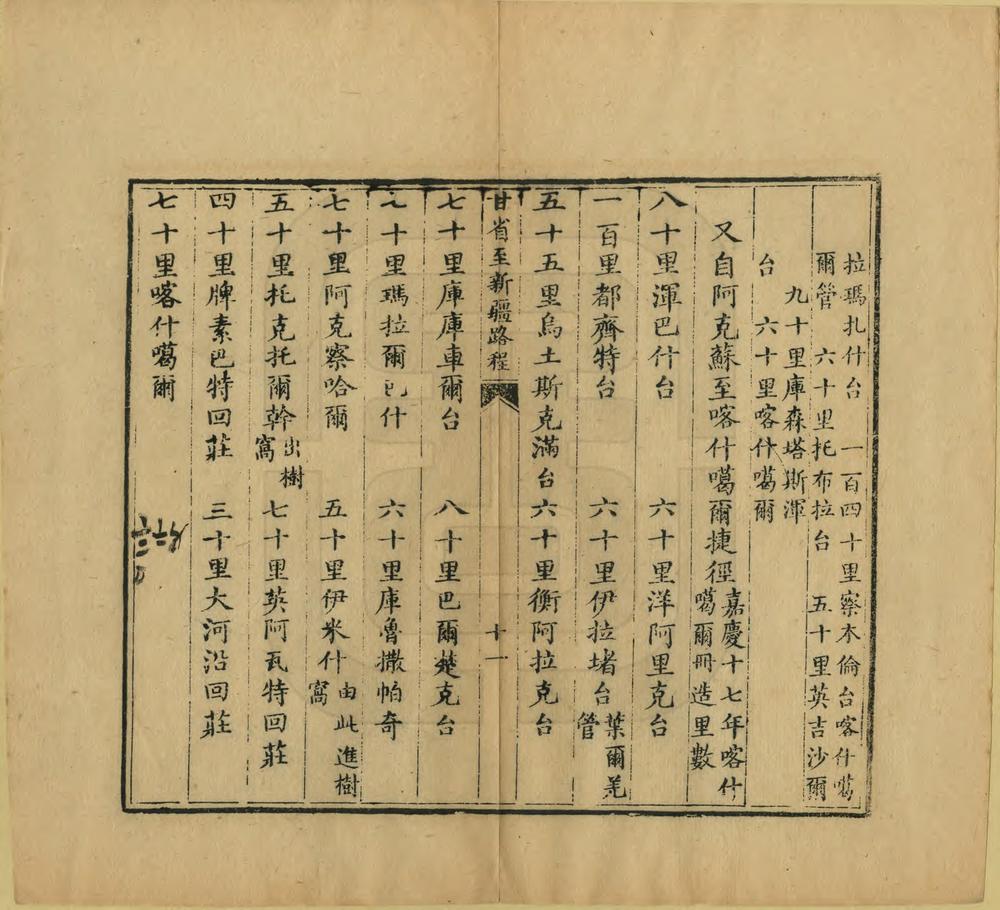 拉瑪扎什台　一百四十里察木倫台喀什噶
爾管　六十里托布拉台　五十里英吉沙爾
九十里庫森塔斯渾
台　六十里喀什噶爾
又自阿克蘇至喀什噶爾捷徑嘉慶十七年喀什
噶爾冊造里數
八十里渾巴什台　六十里洋阿里克台
一百里都齊特台　六十里伊拉堵台葉爾羌
管
五十五里烏土斯克滿台六十里衡阿拉克台
甘省至新疆路程　十一
七十里庫庫車爾台　八十里巴爾楚克台
十里瑪拉爾巴什　六十里庫魯撒帕奇
七十里阿克察哈爾　五十里伊米什由此進樹
窩
五十里托克托爾幹出樹
窩　七十里英阿瓦特回莊
四十里牌素巴特回莊　三十里大河沿回莊
七十里喀什噶爾